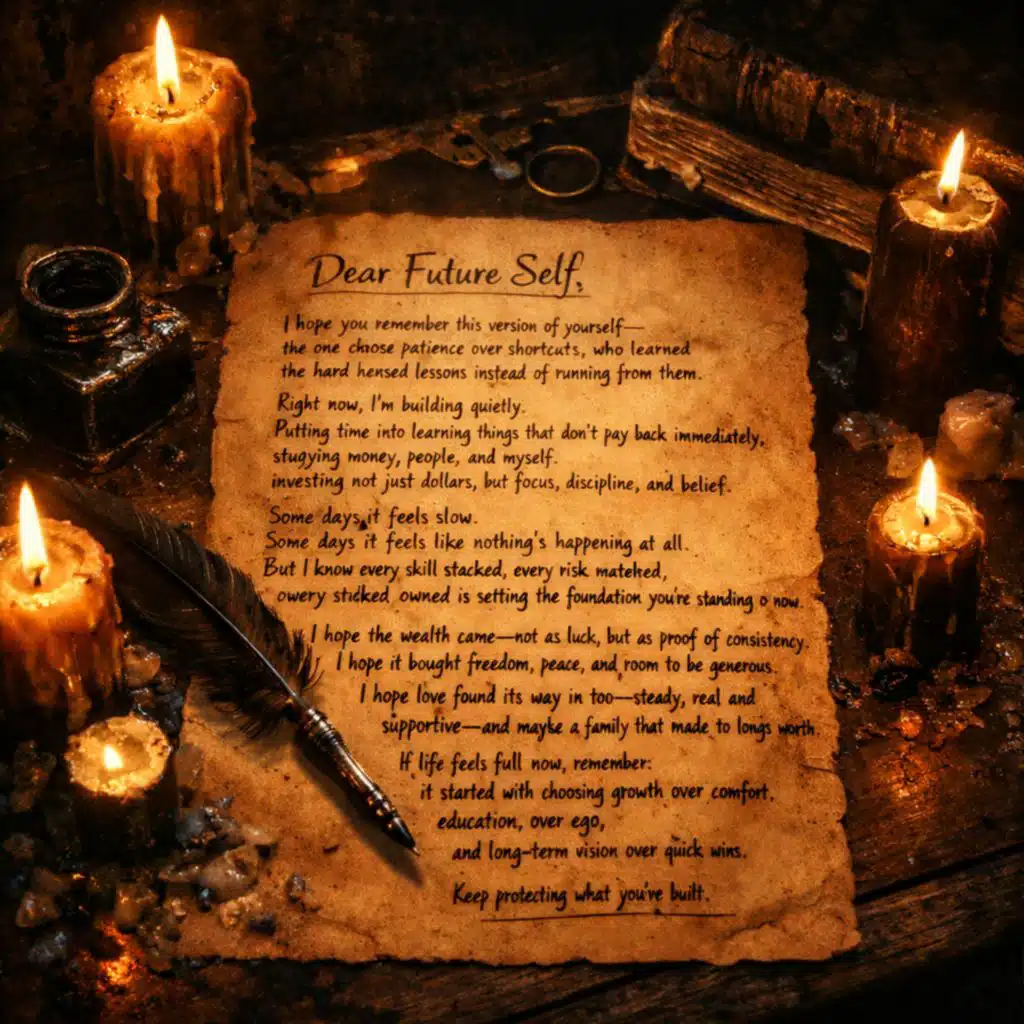 Dear Future Self,
I hope you remember this version of yourself—
the one chose patience over shortcuts, who learned
the hard hensed lessons instead of running from them.
Right now, I'm building quietly.
Putting time into learning things that don't pay back immediately,
stugying money, people, and myself.
investing not just dollars, but focus, discipline, and belief.
Some days it feels slow.
Some days it feels like nothing's happening at all.
But I know every skill stacked, every risk matehed,
owery sticked owned is setting the foundation you're standing o now.
I hope the wealth came—not as luck, but as proof of consistency.
I hope it bought freedom, peace, and room to be generous.
I hope love found its way in too—steady, real and
supportive—and mayke a family that made to longs worth.
If life feels full now, remember:
it started with choosing growth over comfort,
education, over ego,
and long-term vision over quick wins.
Keep protecting what you've built.